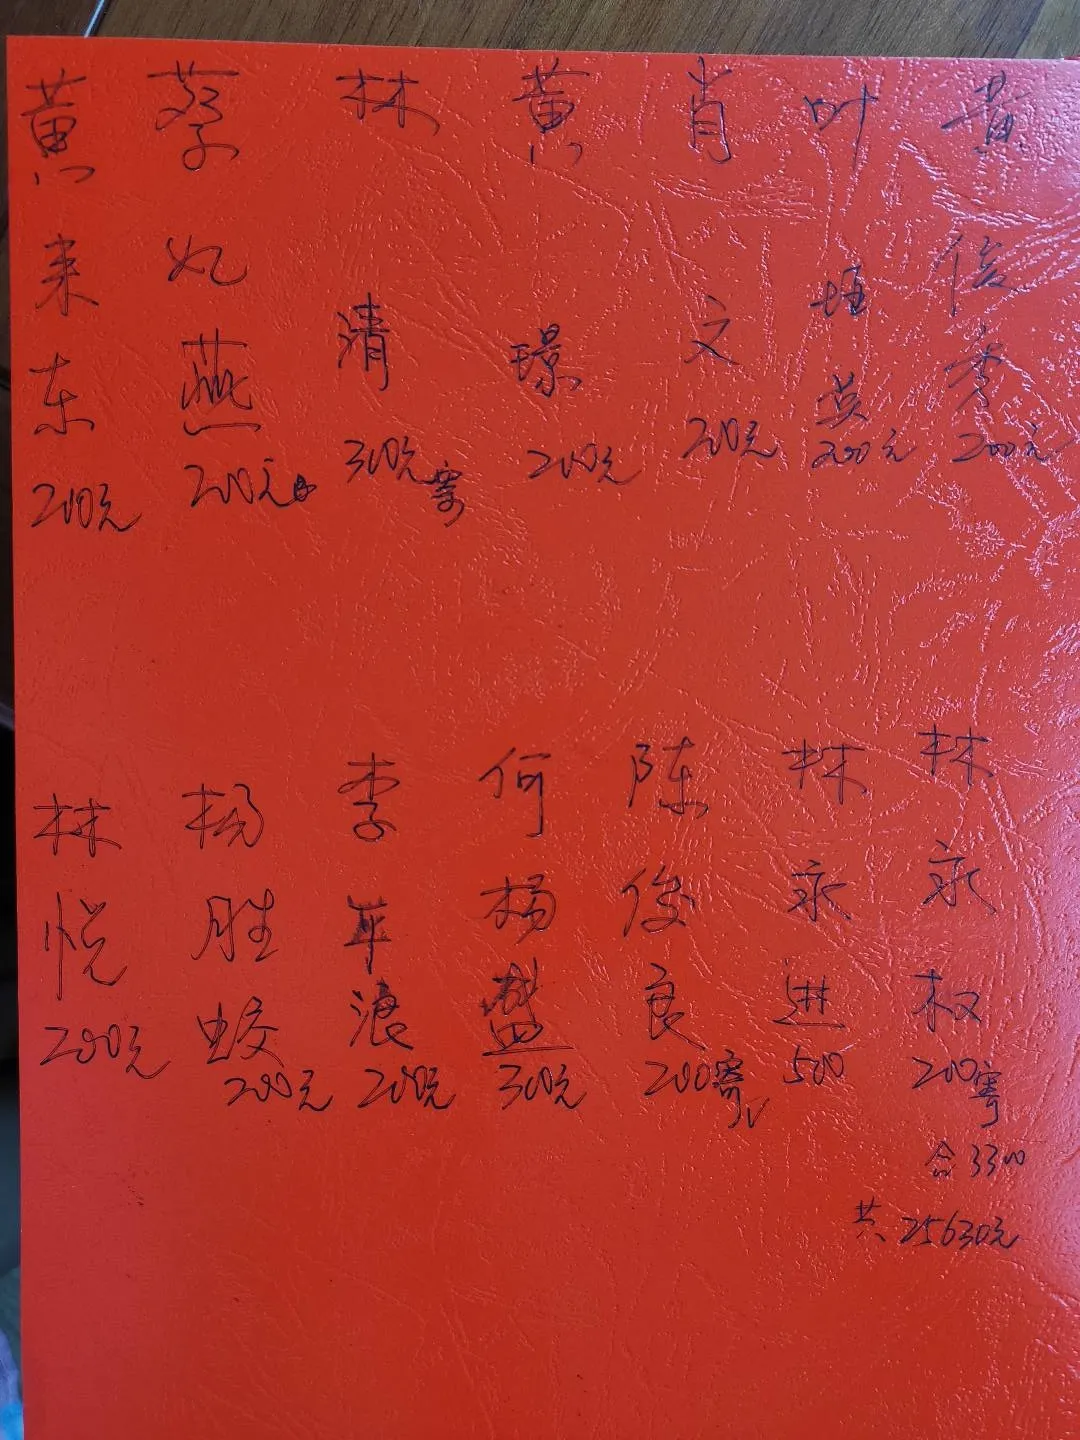 黄来东200元
蔡妃燕200元
林清300元寄
黄璟200元
肖文200元
叶英200元
黄俊秀200元
林悦200元
杨胜蛟200元
李年浪200元
何杨盛300元
陈俊良200寄
林永进500
林永权200寄
合3300
共25630元